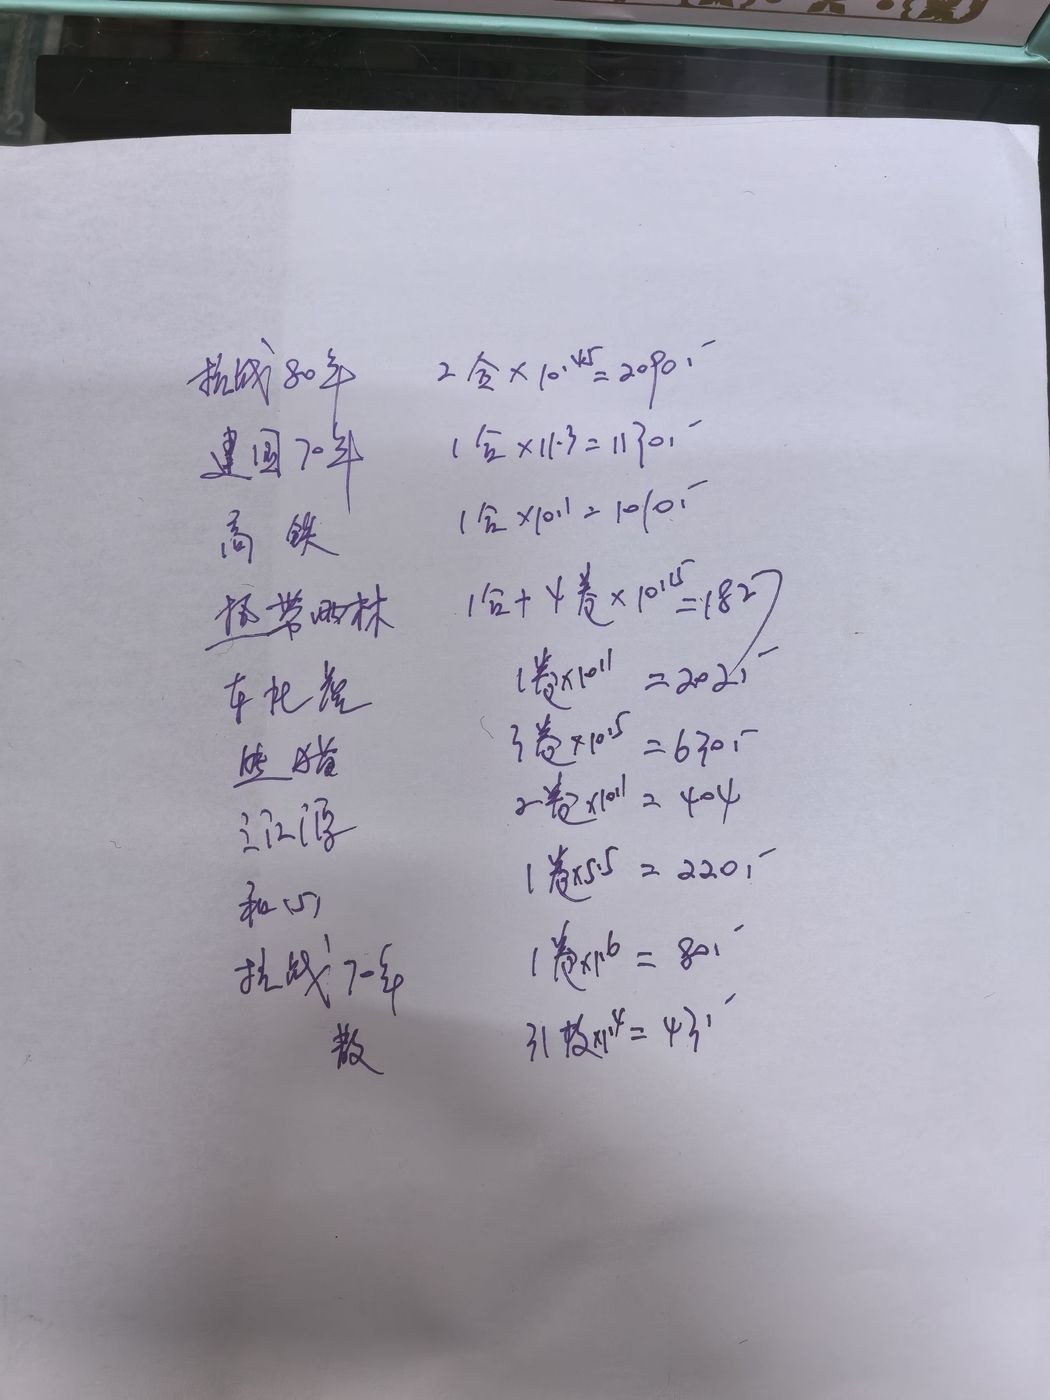 抗战80年 2合×10.45=2090.-
建国70年 1合×11.3=1130.-
高铁 1合×10.1=1010.-
热带雨林 1合+4卷×10.15=1827
东北虎 1卷×10.1=202.-
熊猫 3卷×10.5=630.-
三江源 2卷×10.1=404
和(5) 1卷×5.5=220.-
抗战70年 1卷×1.6=80.-
散 31枚×1.4=43.-